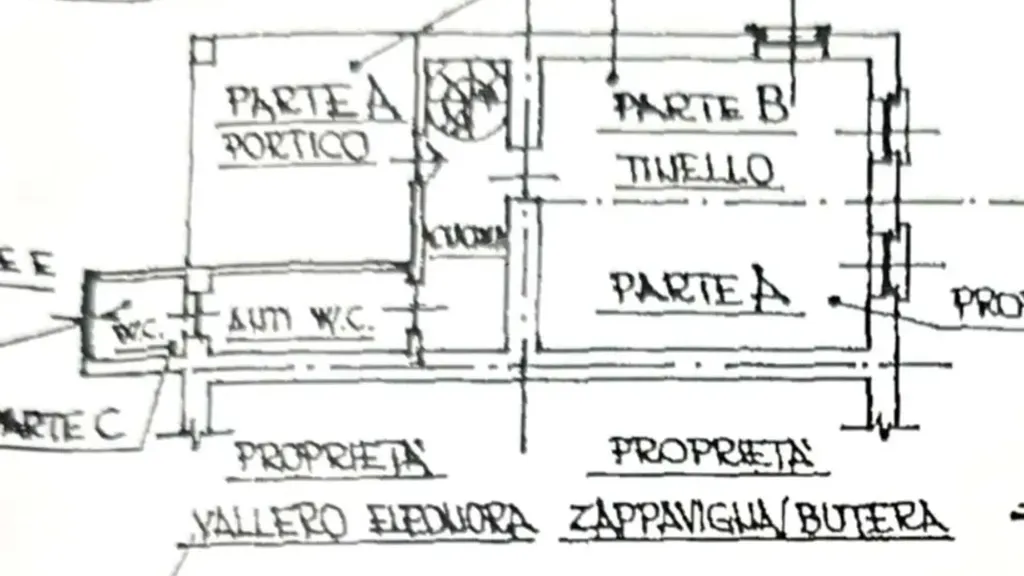 PARTE A
PORTICO
PARTE B
TINELLO
CUCINA
E E
W.C.
ANTI W.C.
PARTE A
PARTE C
PROPRIETÀ
VALLERO ELEONORA
PROPRIETÀ
ZAPPAVIGNA/BUTERA